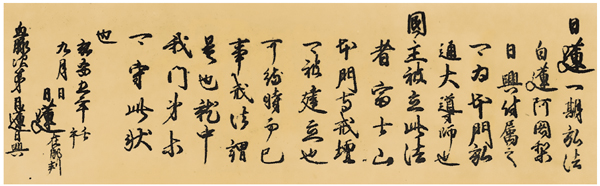 日蓮一期弘法
白蓮阿闍梨
日興付属之
可為本門弘
通大導師也
國主被立此法
者富士山
本門寺戒壇
可被建立也
可待時而已
事戒法謂
是也就中
我門弟等
可守此状
也
弘安五年壬午
九月日
日蓮在御判
血脉次第日蓮日興